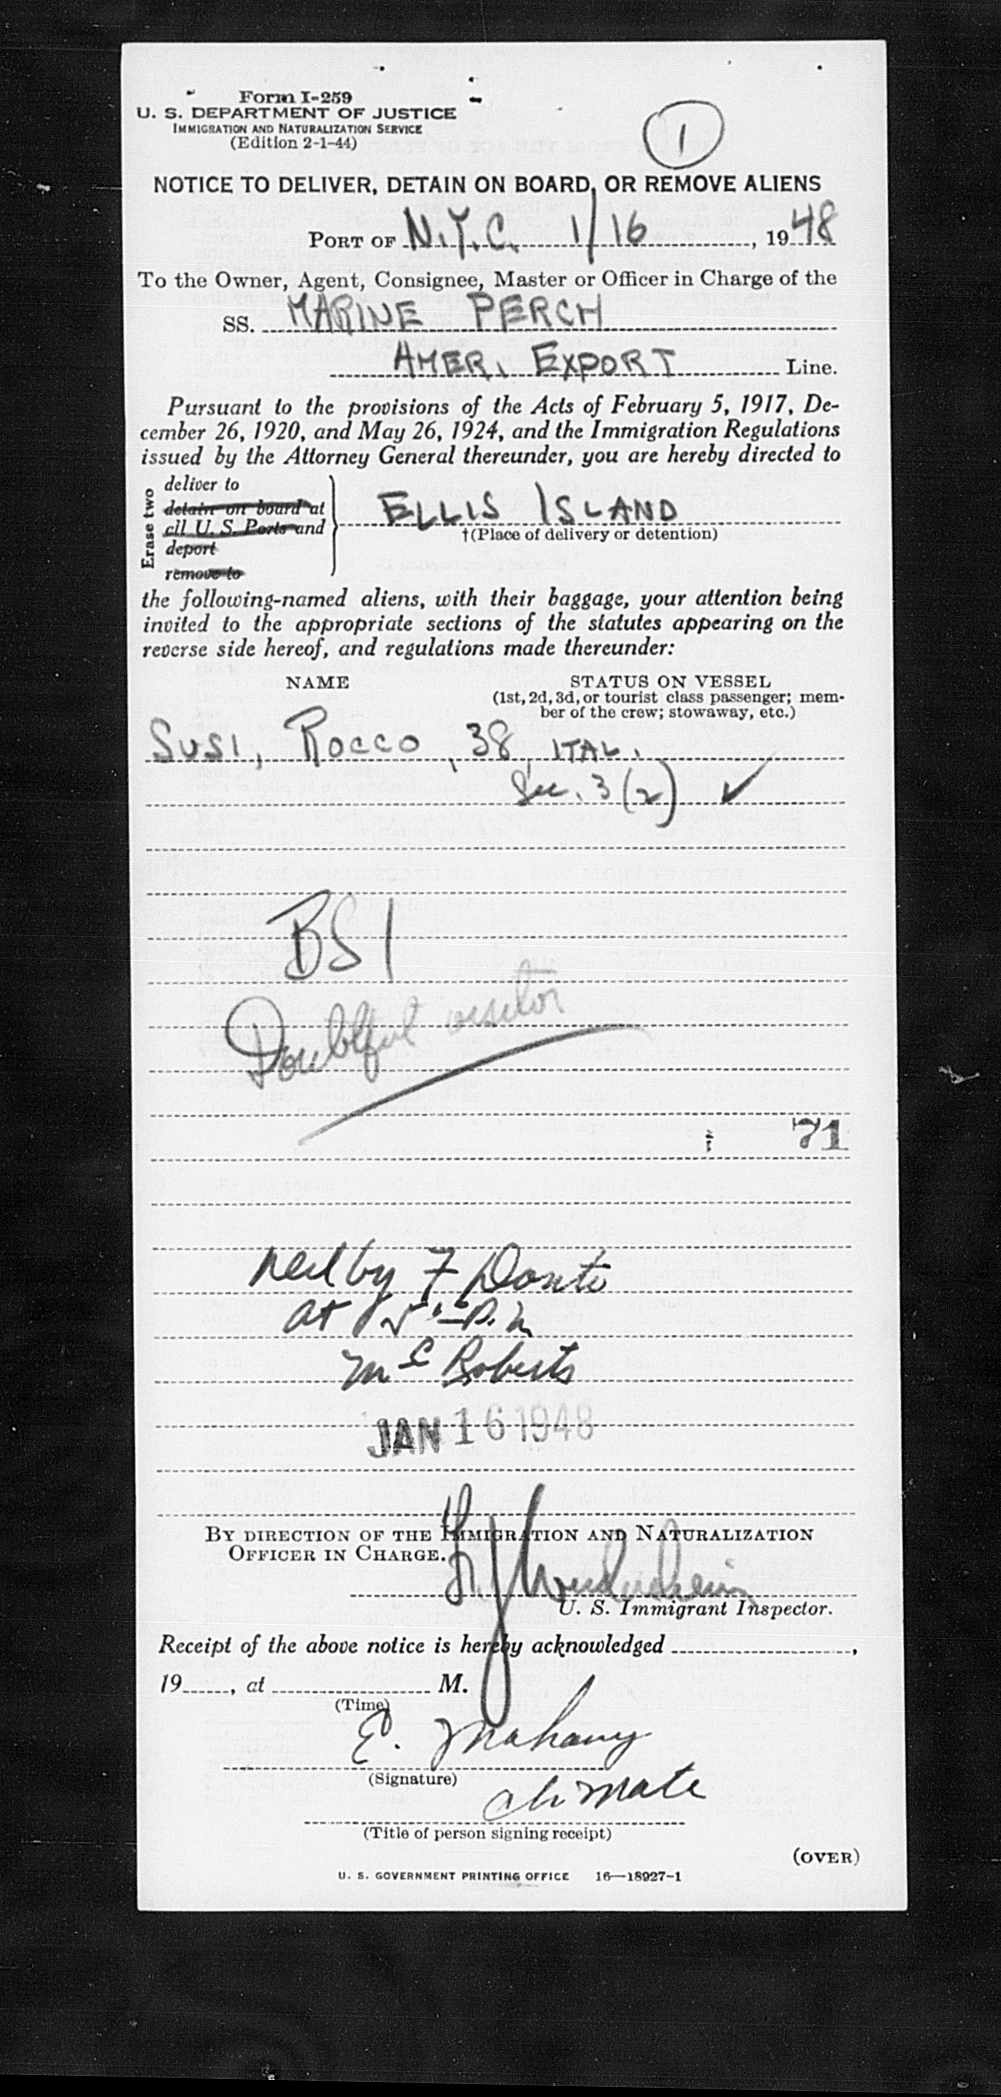 Form I-259
U. S. DEPARTMENT OF JUSTICE
IMMIGRATION AND NATURALIZATION SERVICE
(Edition 2-1-44)
1
NOTICE TO DELIVER, DETAIN ON BOARD, OR REMOVE ALIENS
PORT OF N.Y.C. 1/16, 1948
To the Owner, Agent, Consignee, Master or Officer in Charge of the
SS. MARINE PERCH
AMER. EXPORT Line.
Pursuant to the provisions of the Acts of February 5, 1917, De-
cember 26, 1920, and May 26, 1924, and the Immigration Regulations
issued by the Attorney General thereunder, you are hereby directed to
Erase two
deliver to
detain on board at
all U. S. Ports and
deport
remove to
ELLIS ISLAND
†(Place of delivery or detention)
the following-named aliens, with their baggage, your attention being
invited to the appropriate sections of the statutes appearing on the
reverse side hereof, and regulations made thereunder:
NAME STATUS ON VESSEL
(1st, 2d, 3d, or tourist class passenger; mem-
ber of the crew; stowaway, etc.)
SUSI, ROCCO, 38, ITAL.
Sec. 3(2) ✓
BSI
Doubtful visitor
71
by F
at P.M.
Mc Roberts
JAN 16 1948
BY DIRECTION OF THE IMMIGRATION AND NATURALIZATION
OFFICER IN CHARGE.
U. S. Immigrant Inspector.
Receipt of the above notice is hereby acknowledged ,
19 , at M.
(Time)
E. Mahany
(Signature)
Ch mate
(Title of person signing receipt)
(OVER)
U. S. GOVERNMENT PRINTING OFFICE 16—18927-1